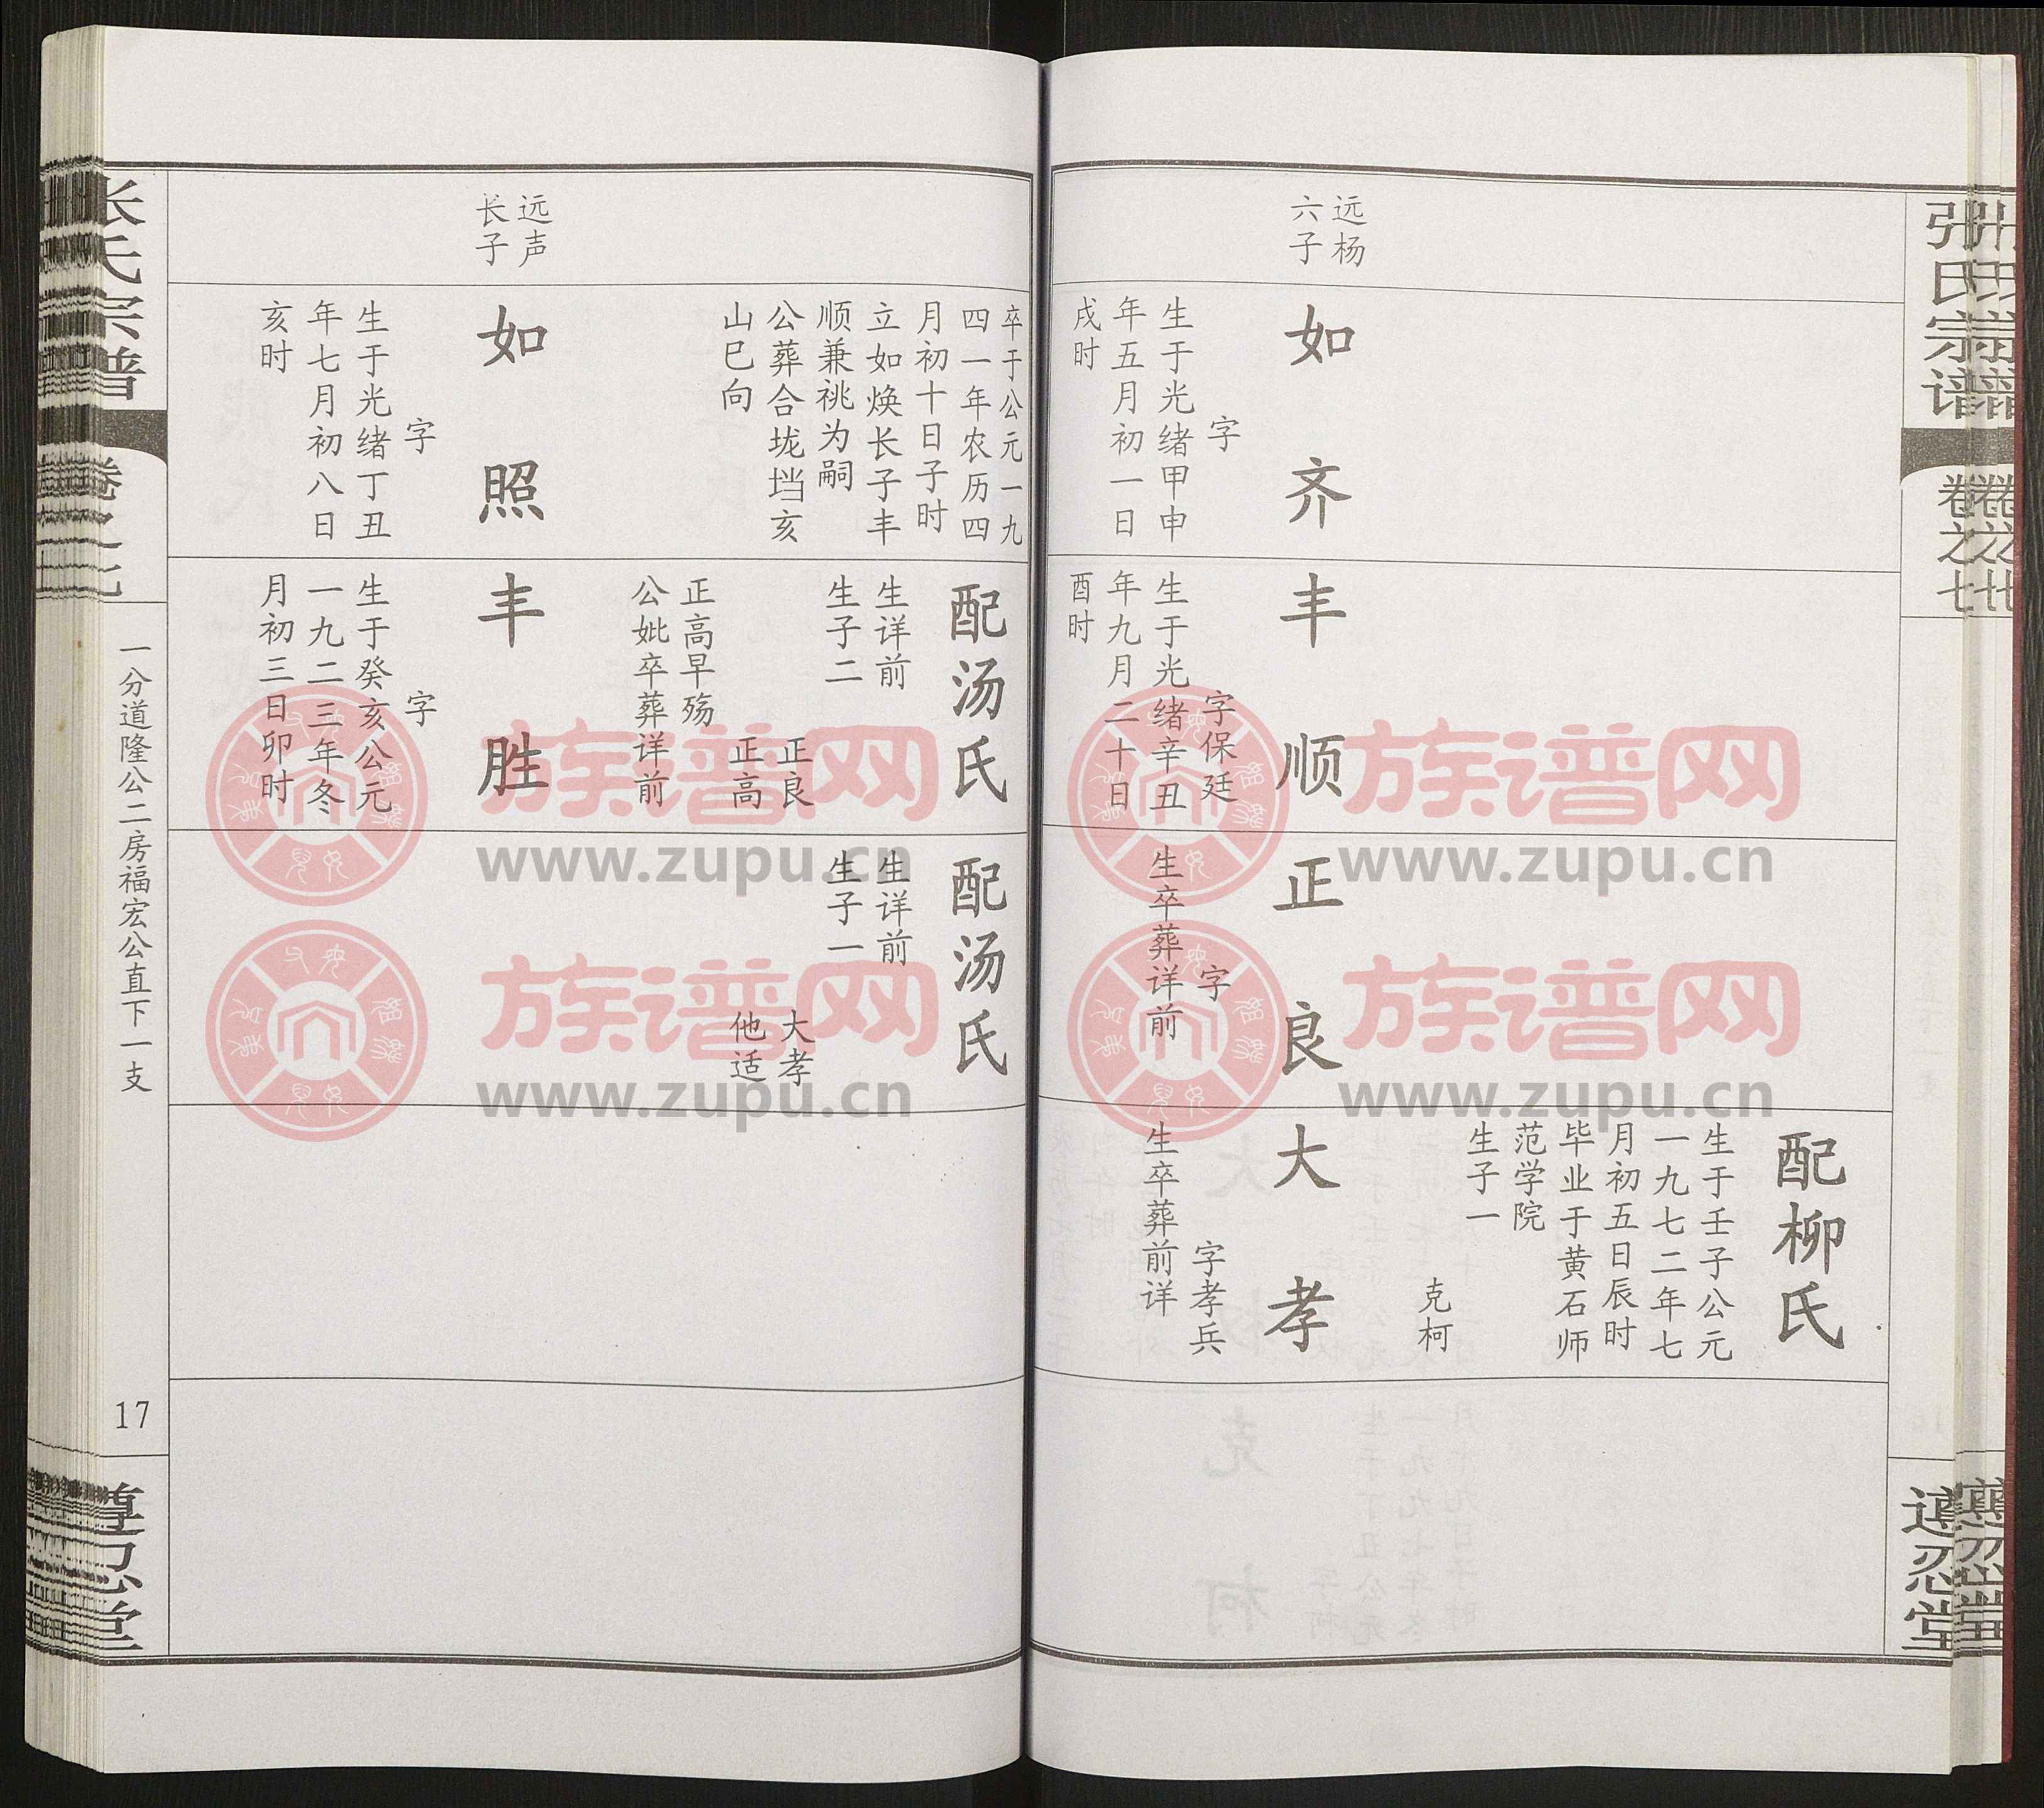 张氏宗谱
卷之七
遵忍堂
远杨
六子
如齐
字
生于光绪甲申
年五月初一日
戌时
卒于公元一九
四一年农历四
月初十日子时
立如焕长子丰
顺兼祧为嗣
公葬合垅垱亥
山巳向
丰顺
字保廷
生于光绪辛丑
年九月二十日
酉时
配汤氏
生详前
生子二
正良
正高
正高早殇
公妣卒葬详前
正良
字
生卒葬详前
配汤氏
生详前
生子一
大孝
他适
配柳氏
生于壬子公元
一九七二年七
月初五日辰时
毕业于黄石师
范学院
生子一
克柯
大孝
字孝兵
生卒葬前详
远声
长子
如照
字
生于光绪丁丑
年七月初八日
亥时
丰胜
字
生于癸亥公元
一九二三年冬
月初三日卯时
张氏宗谱
卷之七
一分道隆公二房福宏公直下一支
17
遵忍堂
族谱网
www.zupu.cn
族谱网
www.zupu.cn
族谱网
www.zupu.cn
族谱网
www.zupu.cn